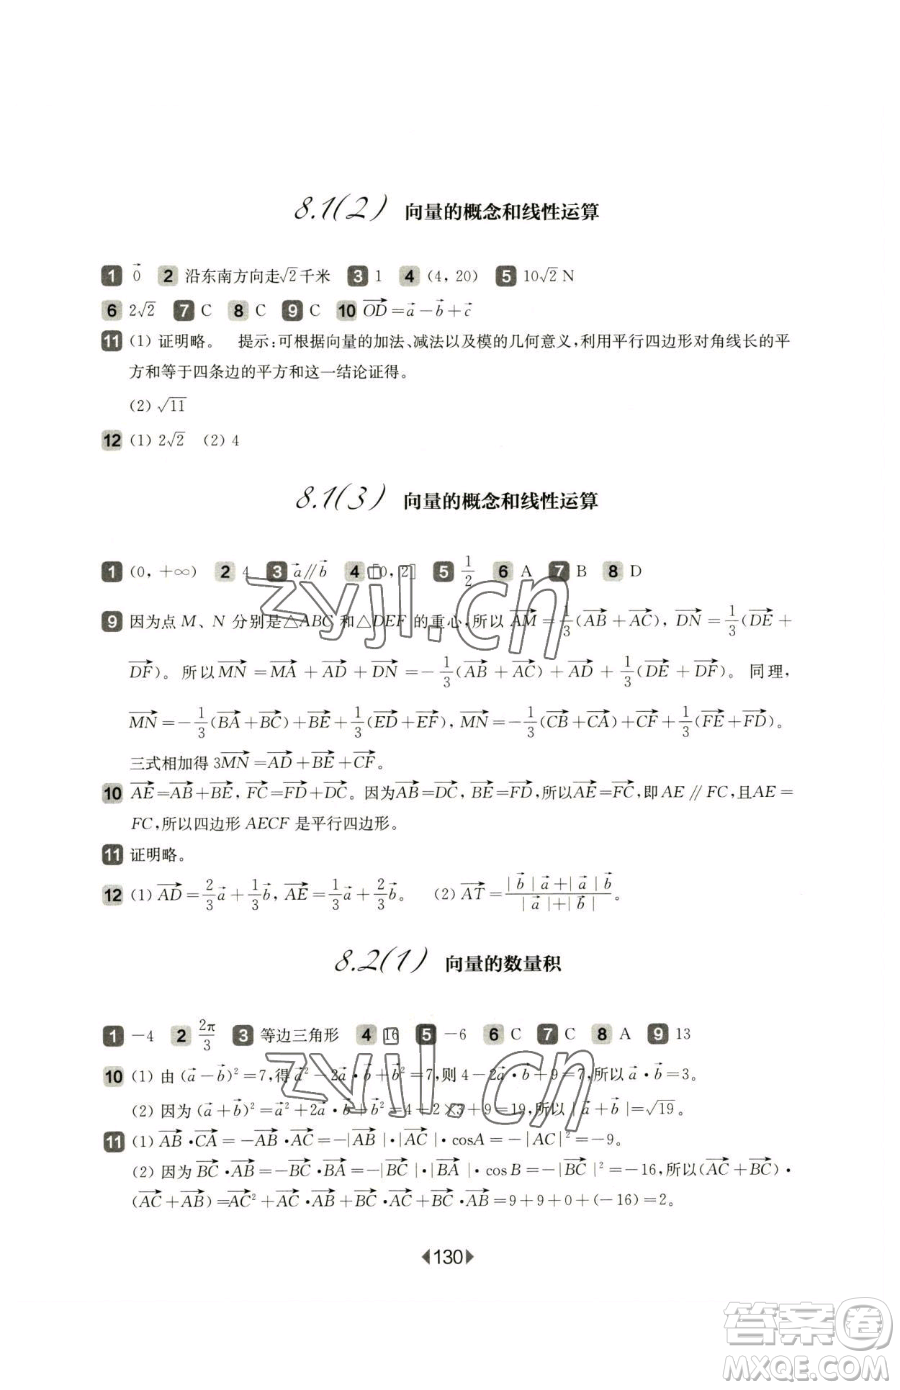 8.1(2) 向量的概念和线性运算
1 \vec{0} 2 沿东南方向走√2千米 3 1 4 (4, 20) 5 10√2 N
6 2√2 7 C 8 C 9 C 10 \vec{OD}=\vec{a}-\vec{b}+\vec{c}
11 (1) 证明略。 提示:可根据向量的加法、减法以及模的几何意义,利用平行四边形对角线长的平
方和等于四条边的平方和这一结论证得。
(2) √11
12 (1) 2√2 (2) 4
8.1(3) 向量的概念和线性运算
1 (0, +∞) 2 4 3 \vec{a}∥\vec{b} 4 [0, 2] 5 1/2 6 A 7 B 8 D
9 因为点 M、N 分别是△ABC 和△DEF 的重心,所以 \vec{AM}=1/3(\vec{AB}+\vec{AC}), \vec{DN}=1/3(\vec{DE}+
\vec{DF})。所以\vec{MN}=\vec{MA}+\vec{AD}+\vec{DN}=-1/3(\vec{AB}+\vec{AC})+\vec{AD}+1/3(\vec{DE}+\vec{DF})。同理,
\vec{MN}=-1/3(\vec{BA}+\vec{BC})+\vec{BE}+1/3(\vec{ED}+\vec{EF}), \vec{MN}=-1/3(\vec{CB}+\vec{CA})+\vec{CF}+1/3(\vec{FE}+\vec{FD})。
三式相加得 3\vec{MN}=\vec{AD}+\vec{BE}+\vec{CF}。
10 \vec{AE}=\vec{AB}+\vec{BE}, \vec{FC}=\vec{FD}+\vec{DC}。因为\vec{AB}=\vec{DC}, \vec{BE}=\vec{FD},所以\vec{AE}=\vec{FC},即 AE∥FC,且AE=
FC,所以四边形 AECF 是平行四边形。
11 证明略。
12 (1) \vec{AD}=2/3\vec{a}+1/3\vec{b}, \vec{AE}=1/3\vec{a}+2/3\vec{b}。 (2) \vec{AT}=(|\vec{b}|\vec{a}+|\vec{a}|\vec{b})/(|\vec{a}|+|\vec{b}|)。
8.2(1) 向量的数量积
1 -4 2 2π/3 3 等边三角形 4 16 5 -6 6 C 7 C 8 A 9 13
10 (1) 由(\vec{a}-\vec{b})²=7,得\vec{a}²-2\vec{a}·\vec{b}+\vec{b}²=7,则 4-2\vec{a}·\vec{b}+9=7,所以\vec{a}·\vec{b}=3。
(2) 因为(\vec{a}+\vec{b})²=\vec{a}²+2\vec{a}·\vec{b}+\vec{b}²=4+2×3+9=19,所以|\vec{a}+\vec{b}|=√19。
11 (1) \vec{AB}·\vec{CA}=-\vec{AB}·\vec{AC}=-|\vec{AB}|·|\vec{AC}|·cosA=-|\vec{AC}|²=-9。
(2) 因为\vec{BC}·\vec{AB}=-\vec{BC}·\vec{BA}=-|\vec{BC}|·|\vec{BA}|·cosB=-|\vec{BC}|²=-16,所以(\vec{AC}+\vec{BC})·
(\vec{AC}+\vec{AB})=\vec{AC}²+\vec{AC}·\vec{AB}+\vec{BC}·\vec{AC}+\vec{BC}·\vec{AB}=9+9+0+(-16)=2。
130
zyjl.cn
zyjl.cn
答案圈
MXQE.COM